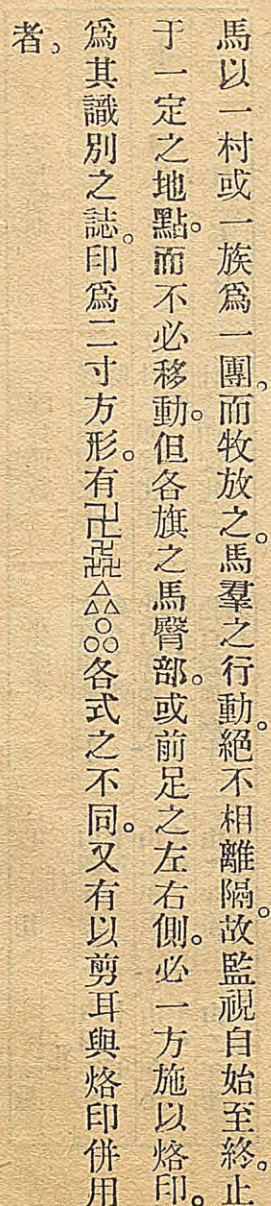 馬以一村或一族爲一團。而牧放之。馬羣之行動。絕不相離隔。故監視自始至終。止
于一定之地點。而不必移動。但各旗之馬臀部。或前足之左右側。必一方施以烙印。
爲其識別之誌。印爲二寸方形。有卍卍卍卍△△△○○○各式之不同。又有以剪耳與烙印併用
者。